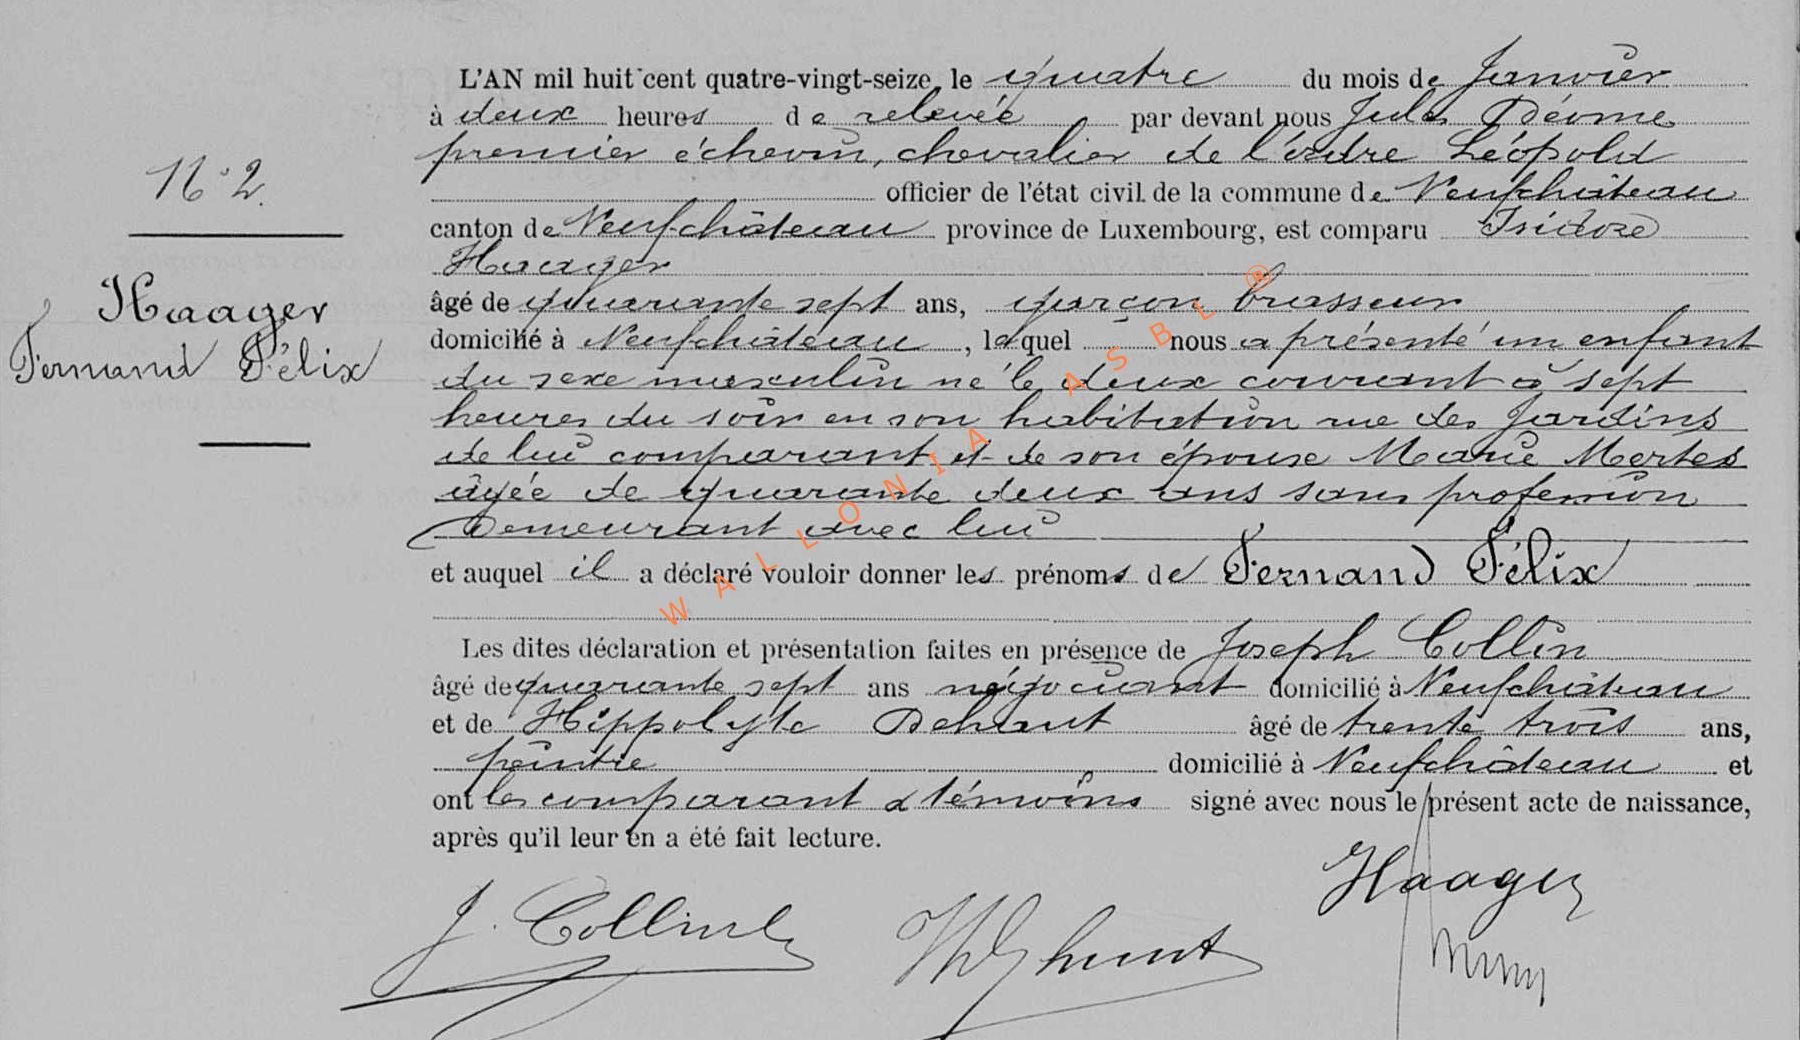 L'AN mil huit cent quatre-vingt-seize, le quatre du mois de Janvier
à deux heures de relevée par devant nous Jules
premier échevin, chevalier de l'ordre Léopold
officier de l'état civil de la commune de Neufchâteau
canton de Neufchâteau province de Luxembourg, est comparu Isidore
Haager
âgé de quarante sept ans, garçon brasseur
domicilié à Neufchâteau, lequel nous a présenté un enfant
du sexe masculin né le deux courant à sept
heures du soir en son habitation rue des Jardins
de lui comparant et de son épouse Marie Mertes
âgée de quarante deux ans sans profession
demeurant avec lui
et auquel il a déclaré vouloir donner les prénoms de Fernand Félix
Les dites déclaration et présentation faites en présence de Joseph Collin
âgé de quarante sept ans négociant domicilié à Neufchâteau
et de Hippolyte Dehaut âgé de trente trois ans,
peintre domicilié à Neufchâteau et
ont les comparant & témoins signé avec nous le présent acte de naissance,
après qu'il leur en a été fait lecture.
N° 2.
Haager
Fernand Félix
J. Collin
Haager
WALLONIA ASBL ®